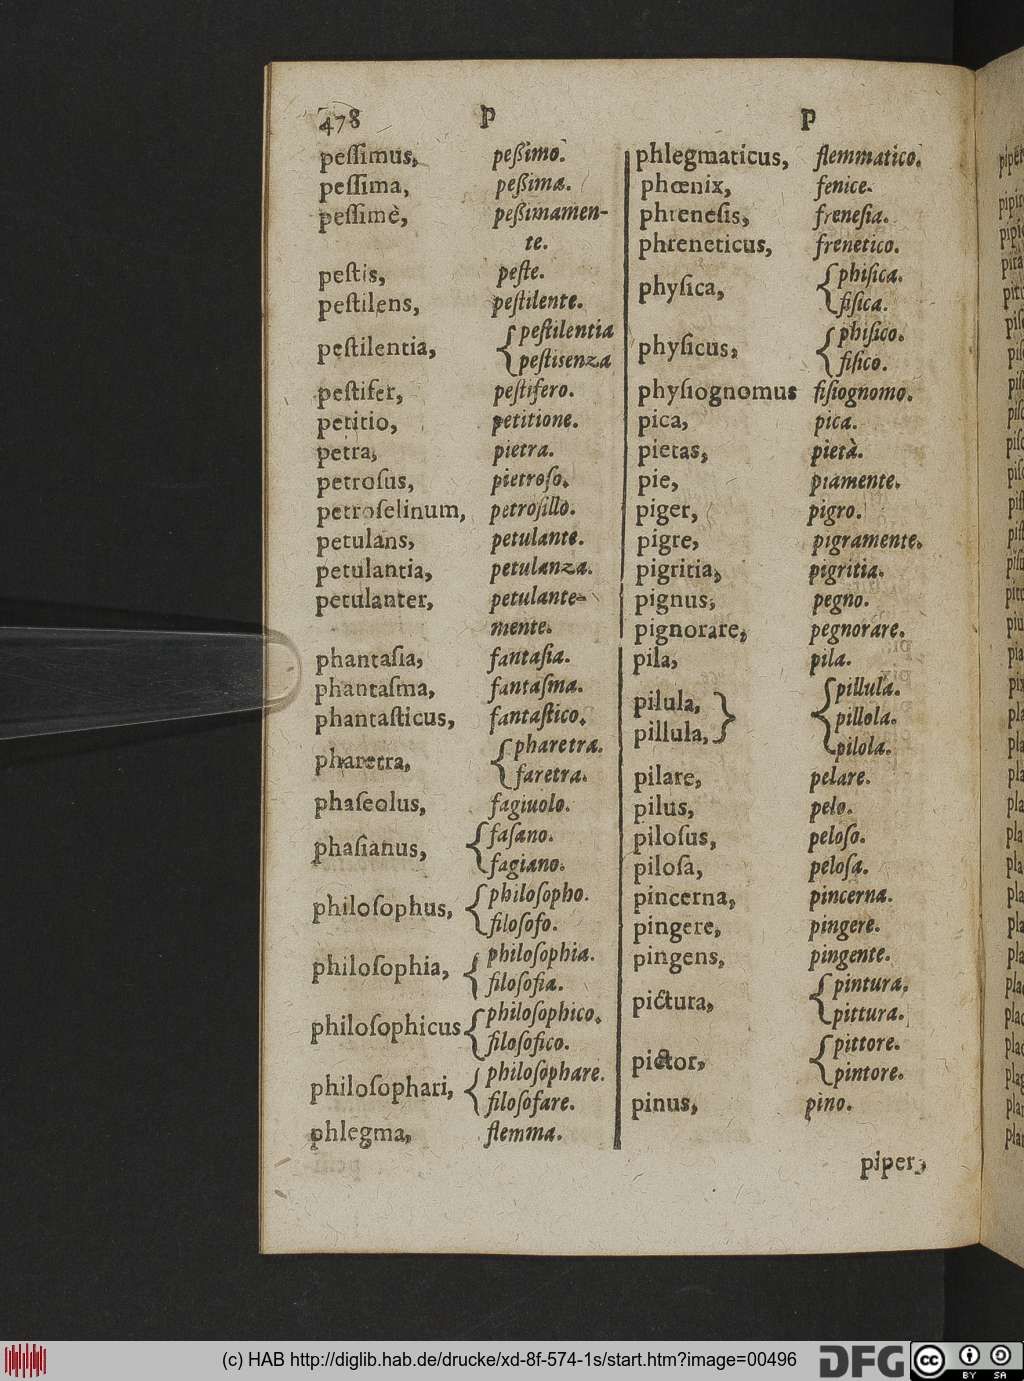 478 P P
peſſimus, peßimo.
peſſima, peßima.
peſſimè, peßimamen-
te.
peſtis, peſte.
peſtilens, peſtilente.
peſtilentia, { peſtilentia
peſtisenza
peſtifer, peſtifero.
petitio, petitione.
petra, pietra.
petroſus, pietroſo.
petroſelinum, petroſillo.
petulans, petulante.
petulantia, petulanza.
petulanter, petulante-
mente.
phantaſia, fantaſia.
phantaſma, fantaſma.
phantaſticus, fantaſtico.
pharetra, { pharetra.
faretra.
phaſeolus, fagiuolo.
phaſianus, { faſano.
fagiano.
philoſophus, { philoſopho.
filoſofo.
philoſophia, { philoſophia.
filoſofia.
philoſophicus { philoſophico.
filoſofico.
philoſophari, { philoſophare.
filoſofare.
phlegma, flemma.
phlegmaticus, flemmatico.
phœnix, fenice.
phreneſis, freneſia.
phreneticus, frenetico.
phyſica, { phiſica.
fiſica.
phyſicus, { phiſico.
fiſico.
phyſiognomus fiſiognomo.
pica, pica.
pietas, pietà.
pie, piamente.
piger, pigro.
pigre, pigramente.
pigritia, pigritia.
pignus, pegno.
pignorare, pegnorare.
pila, pila.
pilula, } { pillula.
pillula, pillola.
pilola.
pilare, pelare.
pilus, pelo.
piloſus, peloſo.
piloſa, peloſa.
pincerna, pincerna.
pingere, pingere.
pingens, pingente.
pictura, { pintura.
pittura.
pictor, { pittore.
pintore.
pinus, pino.
piper,
(c) HAB http://diglib.hab.de/drucke/xd-8f-574-1s/start.htm?image=00496 DFG cc BY SA